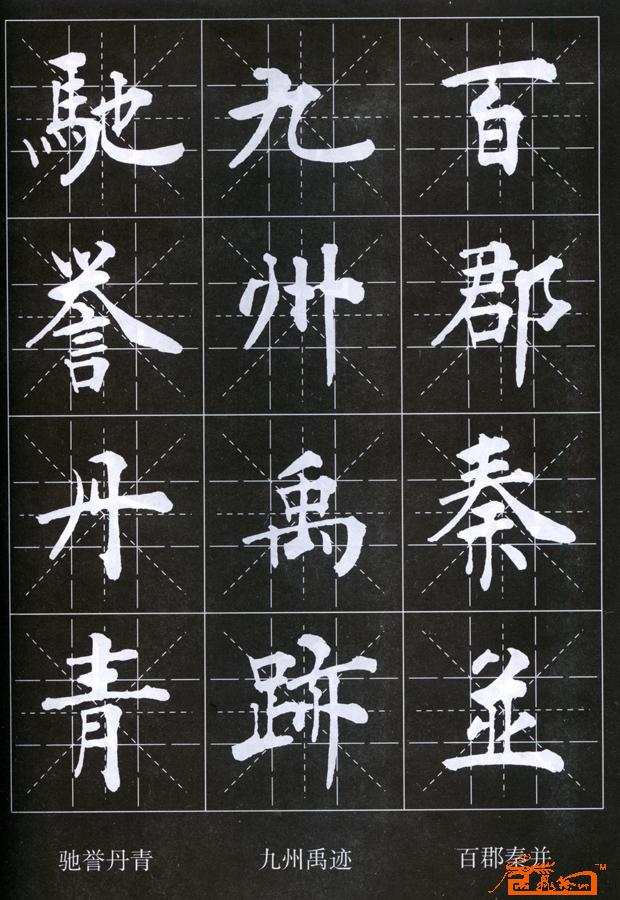 馳誉丹青
九州禹跡
百郡秦並
驰誉丹青
九州禹迹
百郡秦并
TM